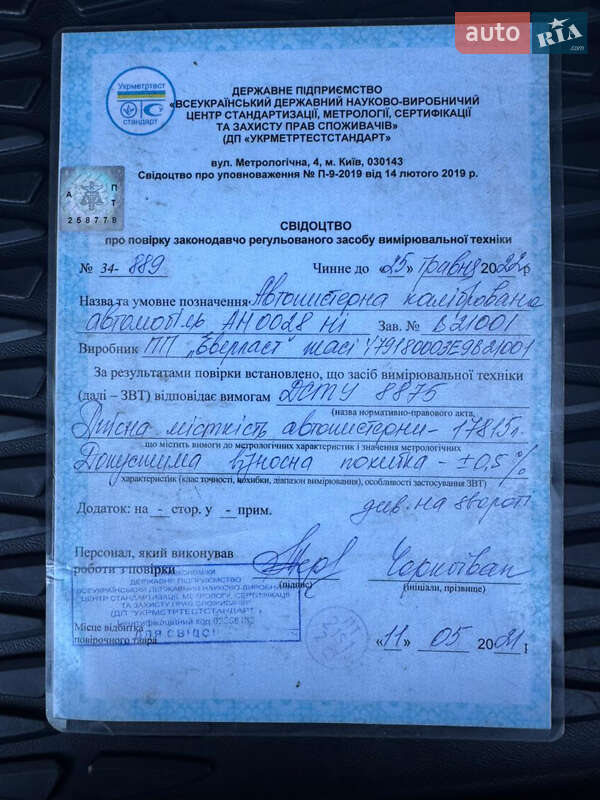 auto RIA.com
Укрметртест
стандарт
ДЕРЖАВНЕ ПІДПРИЄМСТВО
«ВСЕУКРАЇНСЬКИЙ ДЕРЖАВНИЙ НАУКОВО-ВИРОБНИЧИЙ
ЦЕНТР СТАНДАРТИЗАЦІЇ, МЕТРОЛОГІЇ, СЕРТИФІКАЦІЇ
ТА ЗАХИСТУ ПРАВ СПОЖИВАЧІВ»
(ДП «УКРМЕТРТЕСТСТАНДАРТ»
вул. Метрологічна, 4, м. Київ, 030143
Свідоцтво про уповноваження № П-9-2019 від 14 лютого 2019 р.
А П Т
258779
СВІДОЦТВО
про повірку законодавчо регульованого засобу вимірювальної техніки
№ 34- 889 Чинне до «25» травня 2022р
Назва та умовне позначення Автоцистерна калібрована
автомобіль АН0028 НІ Зав. № В21001
Виробник ПП „Еверласт" шасі
За результатами повірки встановлено, що засіб вимірювальної техніки
(далі – ЗВТ) відповідає вимогам ДСТУ 8875
(назва нормативно-правового акта,
Дійсна місткість автоцистерни - 17815л.
що містить вимоги до метрологічних характеристик і значення метрологічних
Допустима відносна похибка - ±0,5 %
характеристик (клас точності, похибки, діапазон вимірювання), особливості застосування ЗВТ)
Додаток: на - стор. у - прим. див. на звороті
Персонал, який виконував
роботи з повірки
(підпис) (ініціали, прізвище)
ДЕРЖАВНЕ ПІДПРИЄМСТВО
ВСЕУКРАЇНСЬКИЙ ДЕРЖАВНИЙ НАУКОВО-ВИРОБНИЧИЙ
ЦЕНТР СТАНДАРТИЗАЦІЇ, МЕТРОЛОГІЇ, СЕРТИФІКАЦІЇ
ТА ЗАХИСТУ ПРАВ СПОЖИВАЧІВ
(ДП "УКРМЕТРТЕСТСТАНДАРТ")
Ідентифікаційний код
Місце відбитка
повірочного тавра
ДЛЯ СВІДОЦ
«11» 05 2021